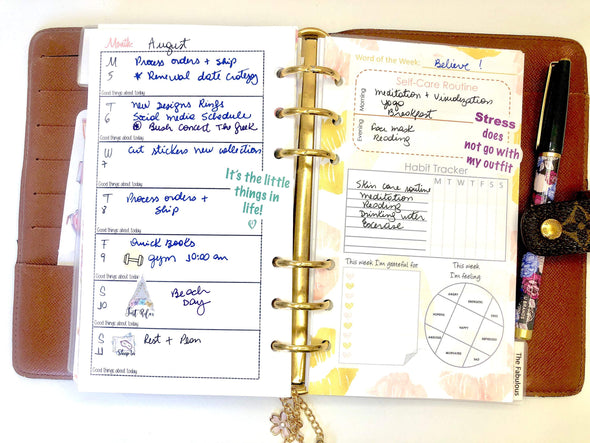 Month: August
M
5
Process orders + ship
* Renewal date
Good things about today
T
6
New Designs Rings
Social Media Schedule
Bush Concert The Greek
Good things about today
W
7
Cut stickers new collection
Good things about today
T
8
Process orders +
ship
Good things about today
F
9
Quick Books
gym 10:00 am
Good things about today
S
10
Beach
Day
Good things about today
S
11
Rest + Plan
Good things about today
It's the little
things in
life!
Word of the Week: Believe!
Self-Care Routine
Morning
meditation + Visualization
Yoga
Breakfast
Evening
Face mask
Reading
Stress
does
not go with
my outfit
Habit Tracker
M T W T F S S
Skin care routine
Meditation
Reading
Drinking water
Exercise
This week I'm grateful for
This week
I'm feeling
HAPPY
SAD
The Fabulous